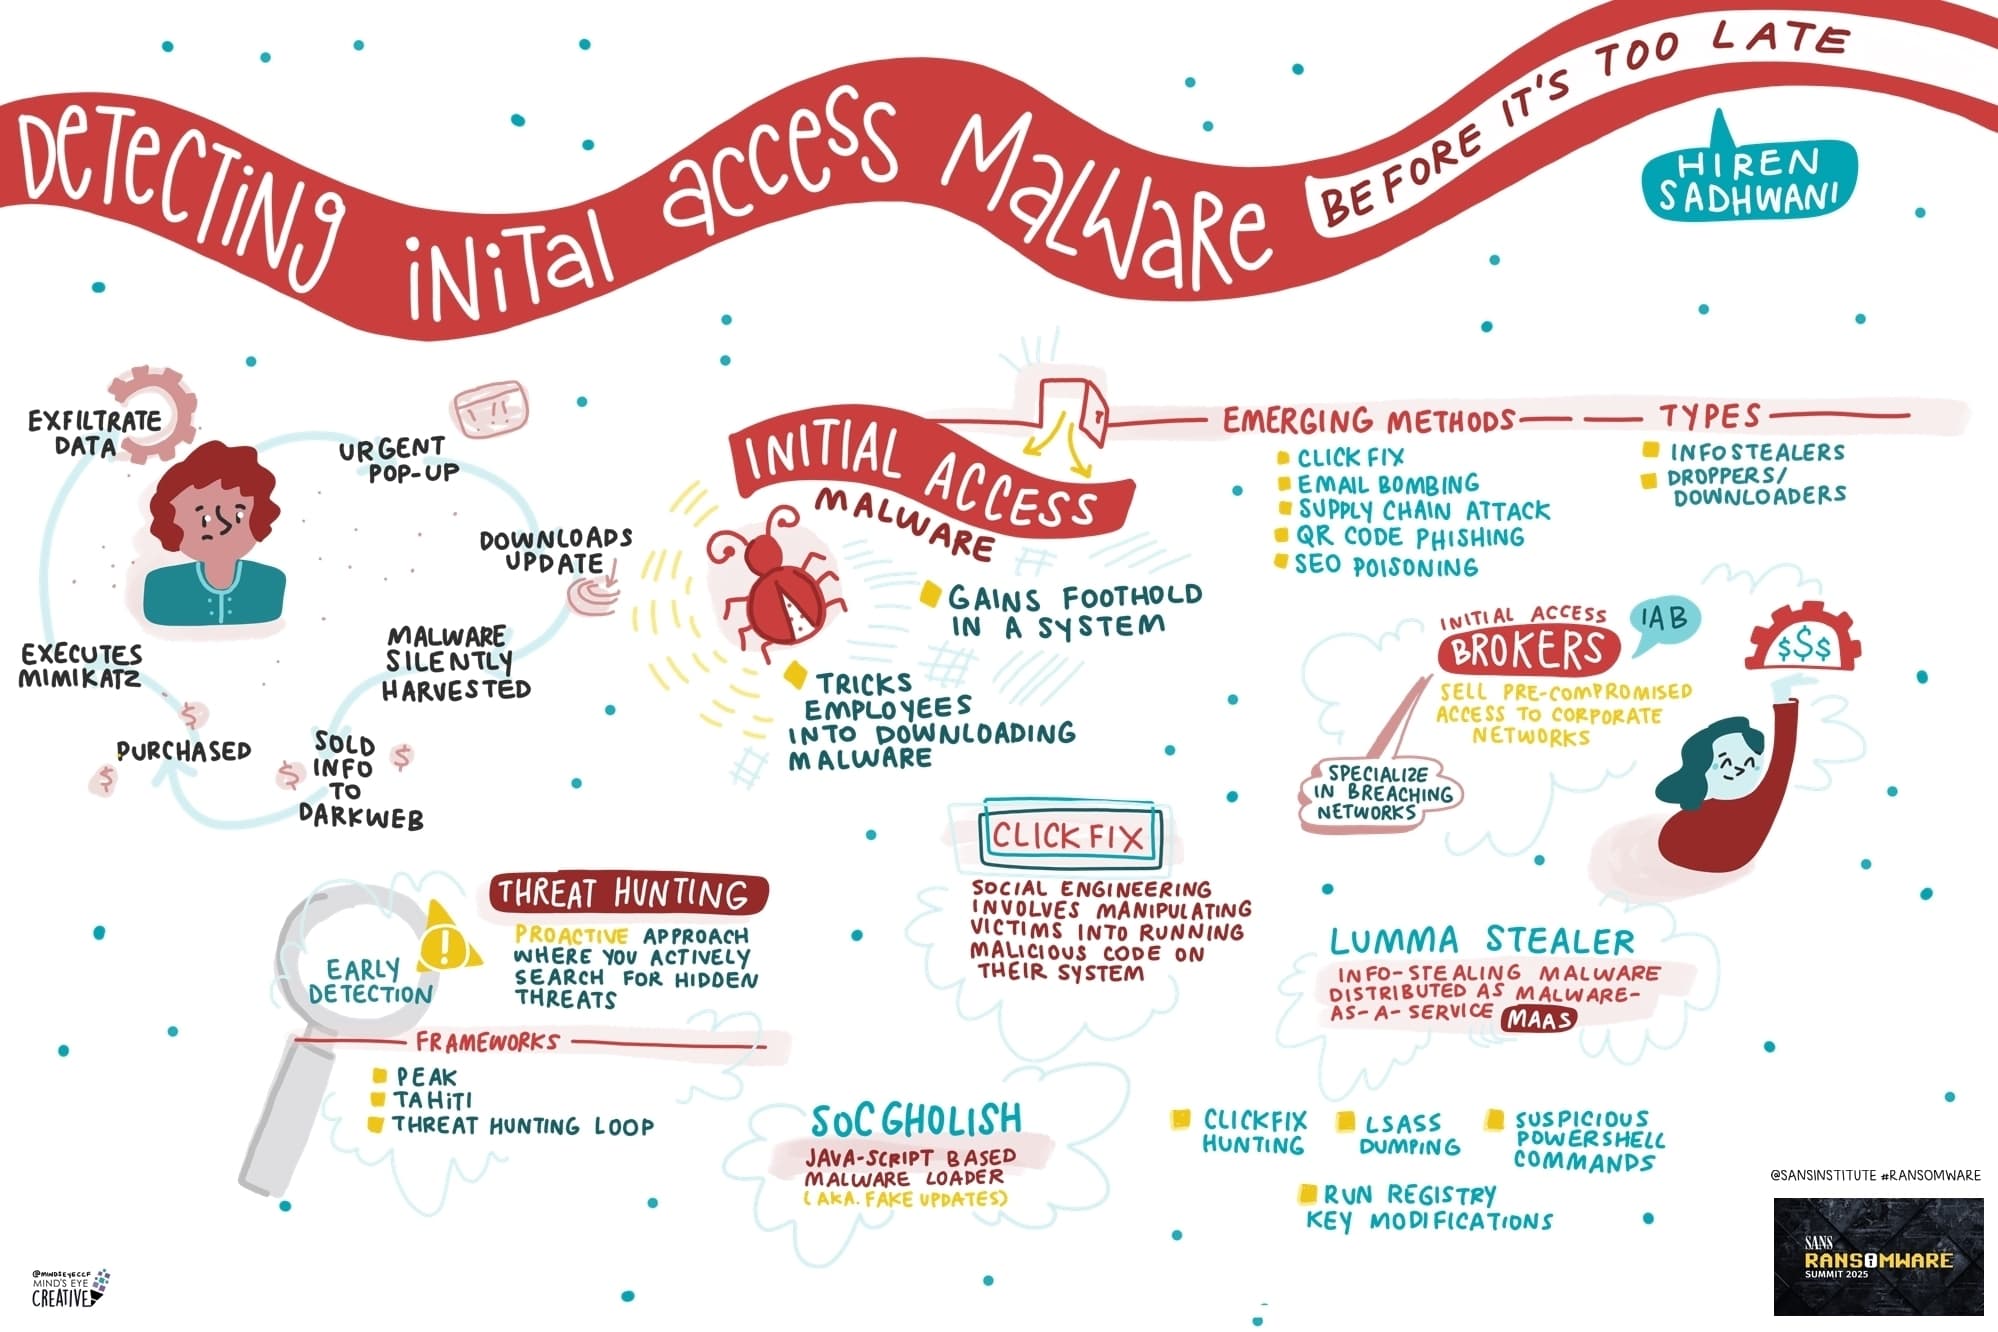 DETECTING INITAL ACCESS MALWARE
BEFORE IT'S TOO LATE
HIREN
SADHWANI
EXFILTRATE
DATA
URGENT
POP-UP
DOWNLOADS
UPDATE
MALWARE
SILENTLY
HARVESTED
SOLD
INFO
TO
DARKWEB
PURCHASED
EXECUTES
MIMIKATZ
$
$
$
$
INITIAL ACCESS
MALWARE
GAINS FOOTHOLD
IN A SYSTEM
TRICKS
EMPLOYEES
INTO DOWNLOADING
MALWARE
EMERGING METHODS
CLICKFIX
EMAIL BOMBING
SUPPLY CHAIN ATTACK
QR CODE PHISHING
SEO POISONING
TYPES
INFOSTEALERS
DROPPERS/
DOWNLOADERS
INITIAL ACCESS
BROKERS
IAB
SELL PRE-COMPROMISED
ACCESS TO CORPORATE
NETWORKS
SPECIALIZE
IN BREACHING
NETWORKS
$$$
THREAT HUNTING
PROACTIVE APPROACH
WHERE YOU ACTIVELY
SEARCH FOR HIDDEN
THREATS
!
EARLY
DETECTION
FRAMEWORKS
PEAK
TAHITI
THREAT HUNTING LOOP
CLICKFIX
SOCIAL ENGINEERING
INVOLVES MANIPULATING
VICTIMS INTO RUNNING
MALICIOUS CODE ON
THEIR SYSTEM
LUMMA STEALER
INFO-STEALING MALWARE
DISTRIBUTED AS MALWARE-
AS-A-SERVICE MAAS
SOCGHOLISH
JAVA-SCRIPT BASED
MALWARE LOADER
(AKA. FAKE UPDATES)
CLICKFIX
HUNTING
LSASS
DUMPING
SUSPICIOUS
POWERSHELL
COMMANDS
RUN REGISTRY
KEY MODIFICATIONS
@SANSINSTITUTE #RANSOMWARE
SANS
RANSOMWARE
SUMMIT 2025
@MINDSEYECCF
MIND'S EYE
CREATIVE